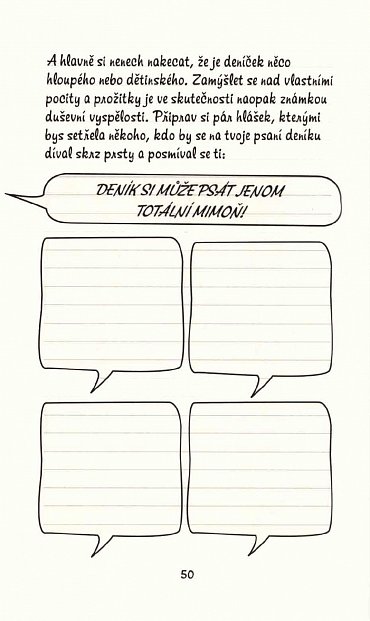 A hlavně si nenech nakecat, že je deníček něco
hloupého nebo dětinského. Zamýšlet se nad vlastními
pocity a prožitky je ve skutečnosti naopak známkou
duševní vyspělosti. Připrav si pár hlášek, kterými
bys setřela někoho, kdo by se na tvoje psaní deníku
díval skrz prsty a posmíval se ti:
DENÍK SI MŮŽE PSÁT JENOM
TOTÁLNÍ MIMOŇ!
50